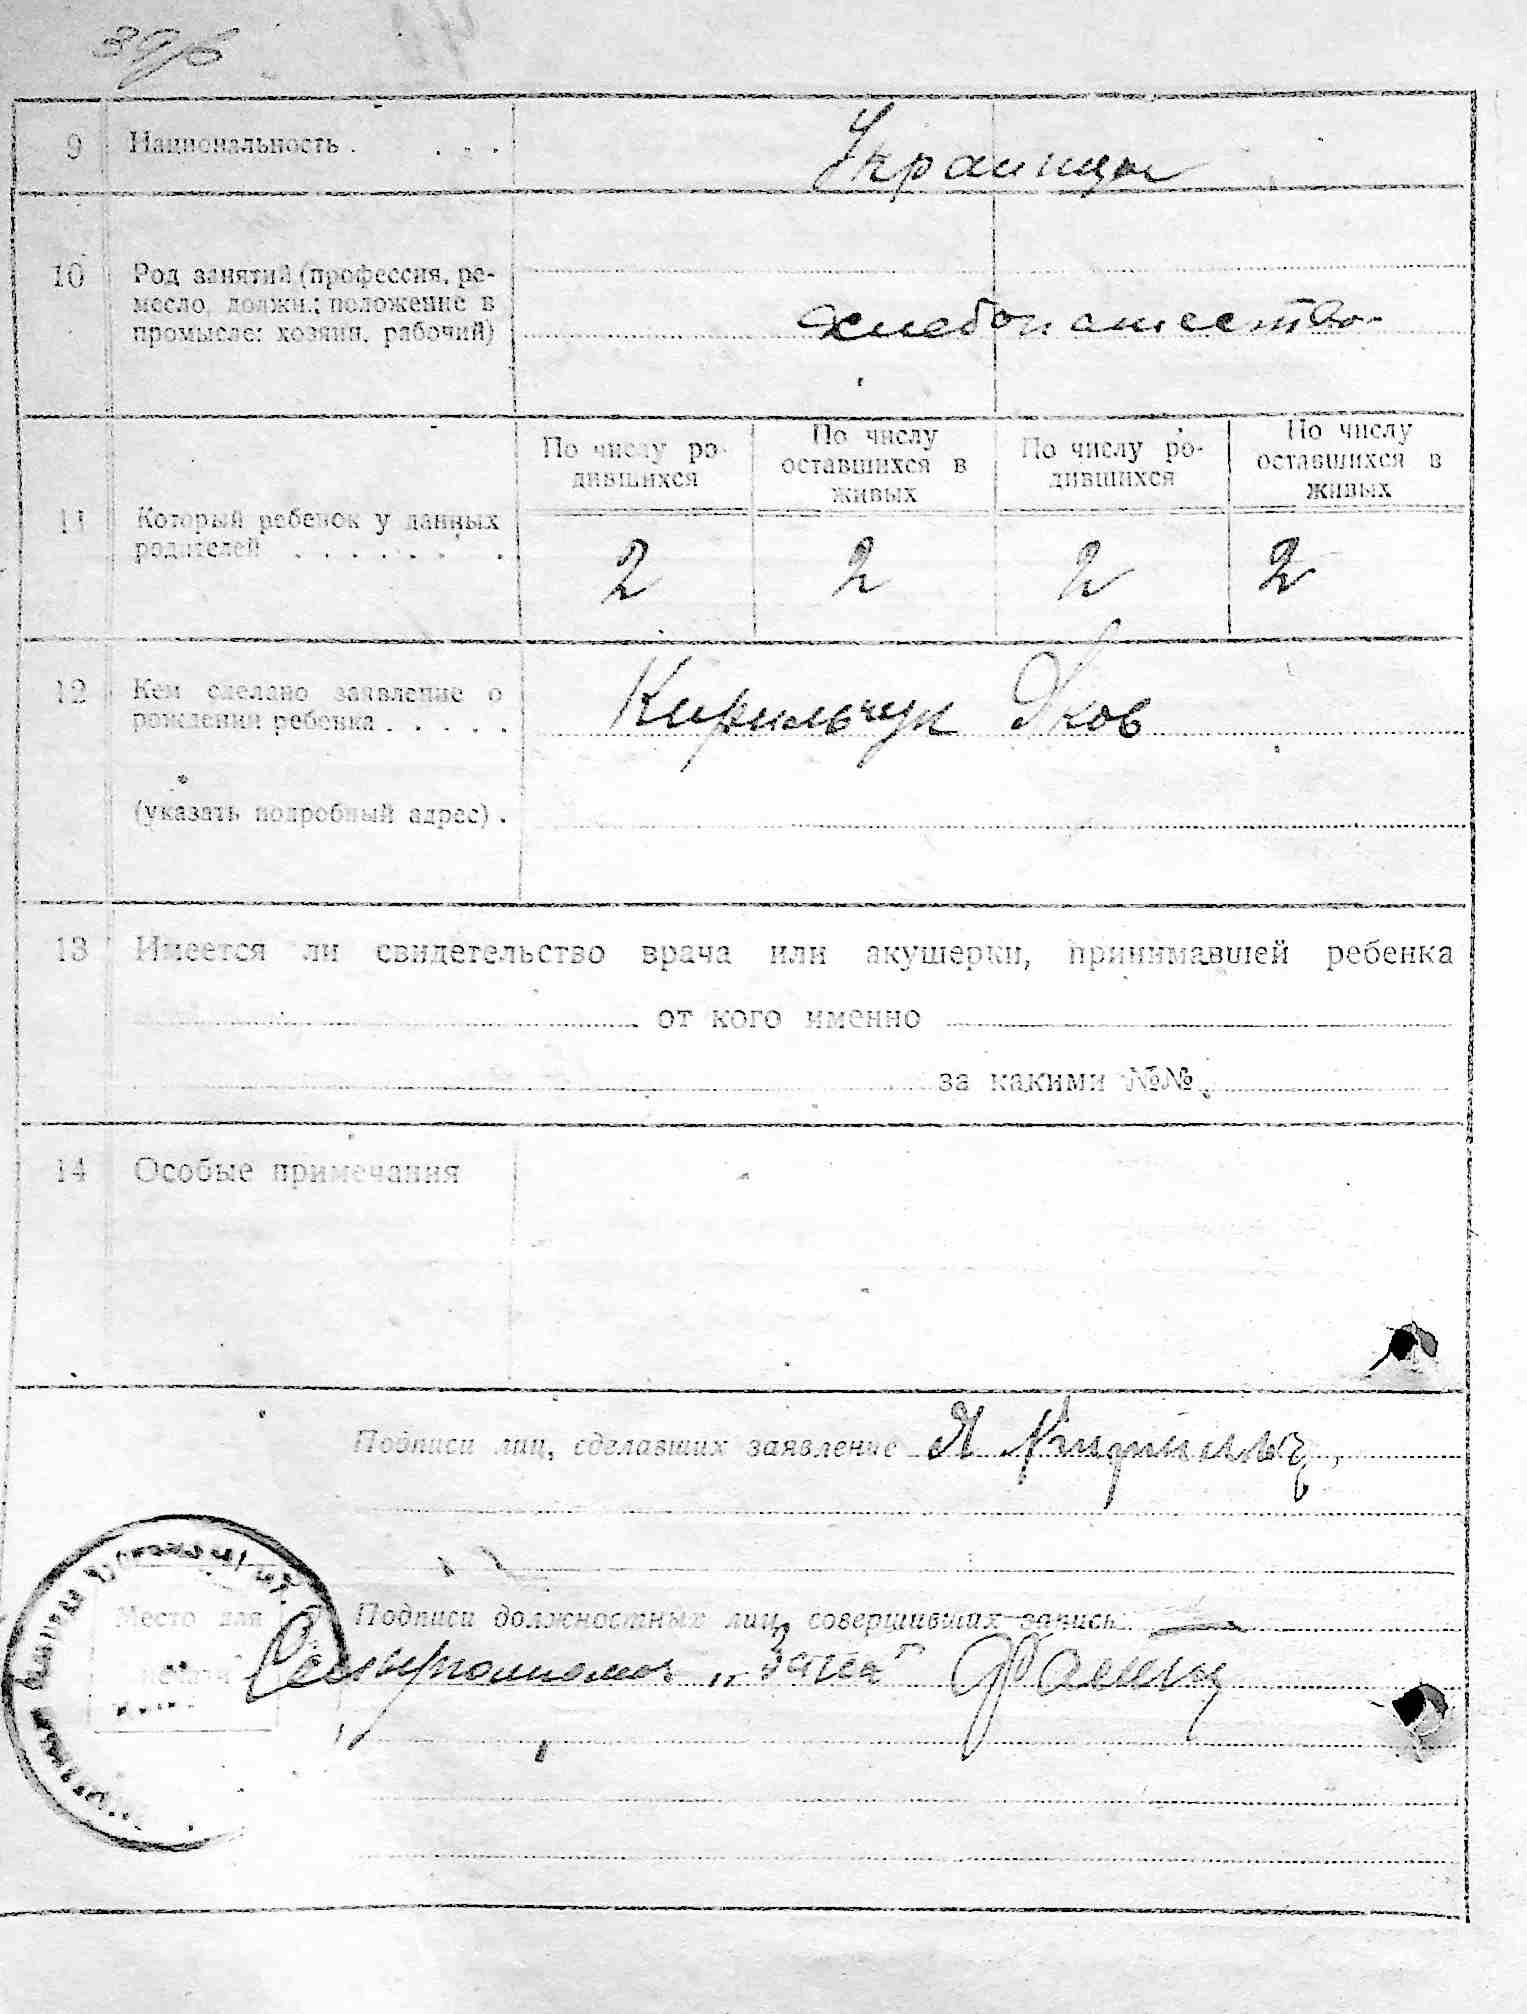 9 Национальность . . . . Украинцы
10 Род занятий (профессия, ре-
месло, должн.; положение в
промысле: хозяин, рабочий) хлебопашество
По числу ро-
дившихся
По числу
оставшихся в
живых
По числу ро-
дившихся
По числу
оставшихся в
живых
11 Который ребенок у данных
родителей . . . . . . .
2 2 2 2
12 Кем сделано заявление о
рождении ребенка . . . . . Кирильчук Яков
(указать подробный адрес) .
13 Имеется ли свидетельство врача или акушерки, принимавшей ребенка
от кого именно
за какими №№
14 Особые примечания
Подписи лиц, сделавших заявление Я Кирильч
Место для
печати
Подписи должностных лиц, совершивших запись